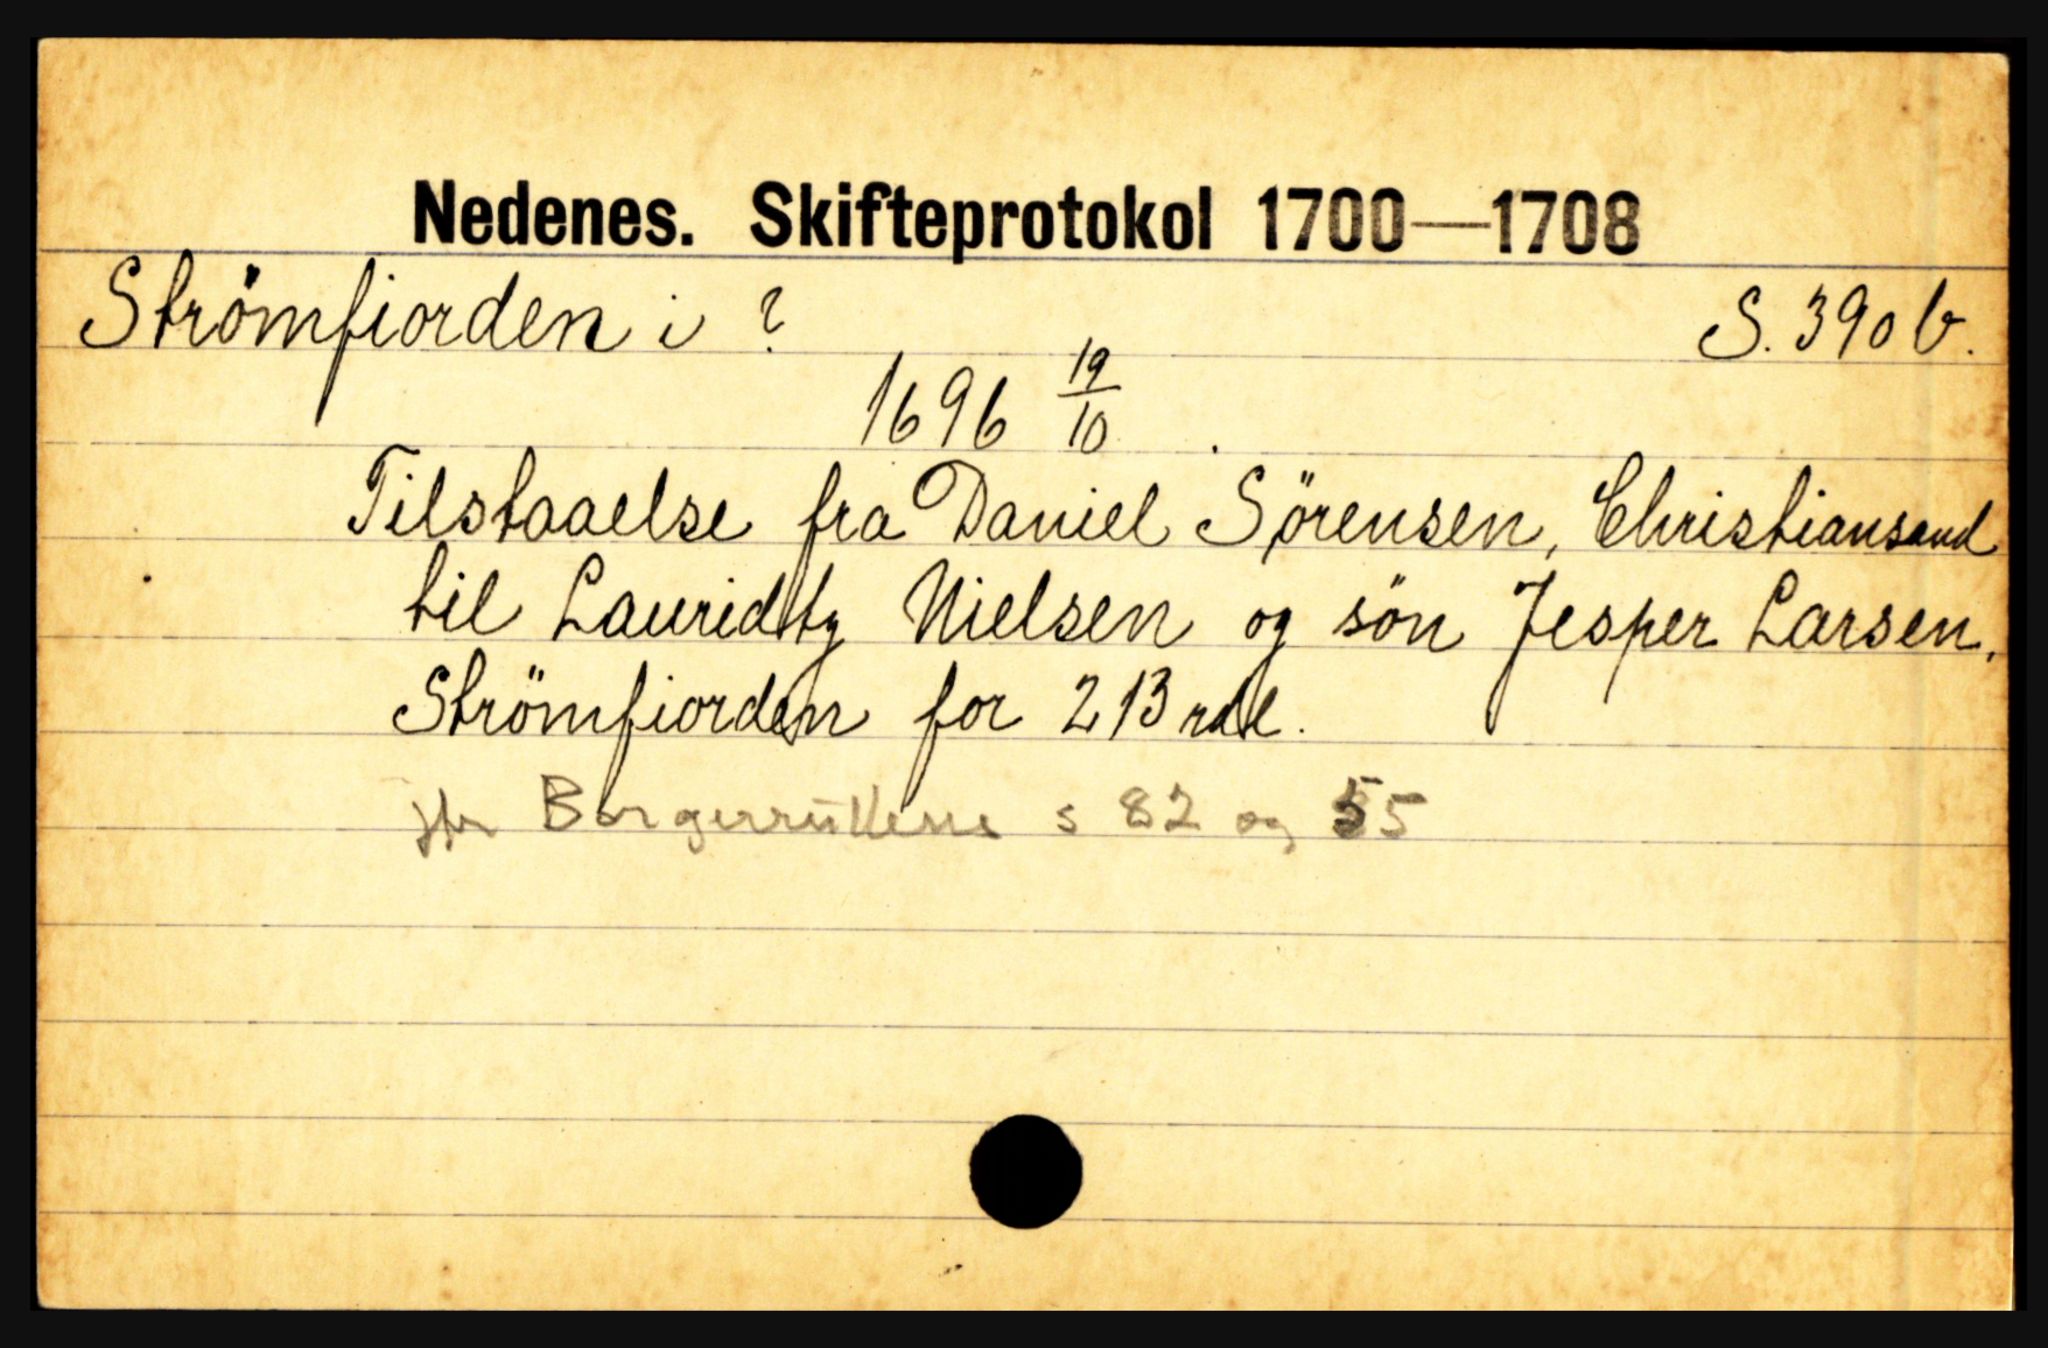 Nedenes. Skifteprotokol 1700—1708
Strömfiorden i ? S. 390 b.
1696 19/10.
Tilstaaelse fra Daniel Sörensen, Christiansand
til Lauridtz Nielsen og sön Jesper Larsen,
Strömfiorden for 213 rdl.
jfr Borgerrullene s 82 og 55